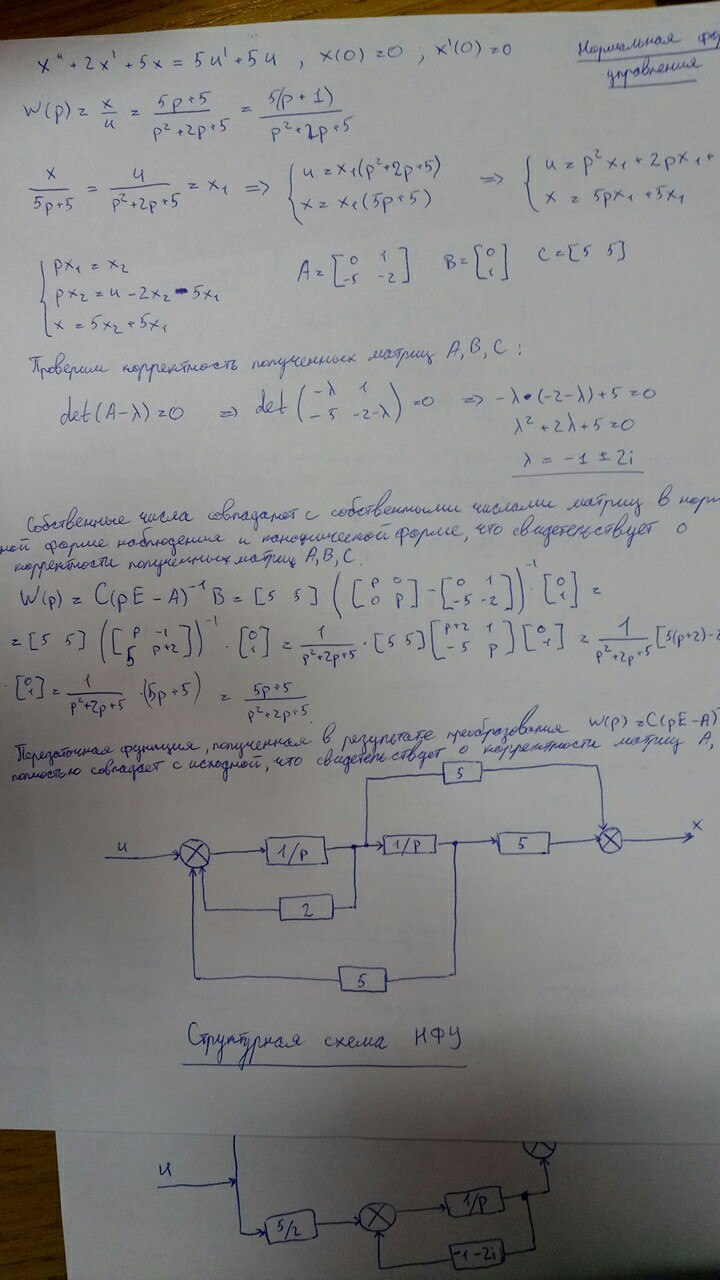 x'' + 2x' + 5x = 5u' + 5u , x(0) = 0 , x'(0) = 0
Нормальная фо
управления
W(p) = x/u = (5p+5)/(p²+2p+5) = 5(p+1)/(p²+2p+5)
x/(5p+5) = u/(p²+2p+5) = x₁ => { u = x₁(p²+2p+5) => { u = p²x₁ + 2px₁ +
x = x₁(5p+5) x = 5px₁ + 5x₁
{ px₁ = x₂
px₂ = u - 2x₂ - 5x₁
x = 5x₂ + 5x₁
A = [0 1; -5 -2] B = [0; 1] C = [5 5]
Проверим корректность полученных матриц A, B, C :
det(A-λ) = 0 => det(-λ 1; -5 -2-λ) = 0 => -λ·(-2-λ)+5 = 0
λ² + 2λ + 5 = 0
λ = -1 ± 2i
Собственные числа совпадают с собственными числами матриц в нор
ной форме наблюдения и канонической форме, что свидетельствует о
корректности полученных матриц A, B, C.
W(p) = C(pE - A)⁻¹ B = [5 5] ([p 0; 0 p] - [0 1; -5 -2])⁻¹ · [0; 1] =
= [5 5] ([p -1; 5 p+2])⁻¹ · [0; 1] = 1/(p²+2p+5) · [5 5] [p+2 1; -5 p] [0; 1] = 1/(p²+2p+5) [5(p+2)-2
· [0; 1] = 1/(p²+2p+5) · (5p+5) = (5p+5)/(p²+2p+5)
Передаточная функция, полученная в результате преобразования W(p) = C(pE-A)
полностью совпадает с исходной, что свидетельствует о корректности матриц A,
5
u 1/p 1/p 5 x
2
5
Структурная схема НФУ
u
5/2 1/p
-1-2i